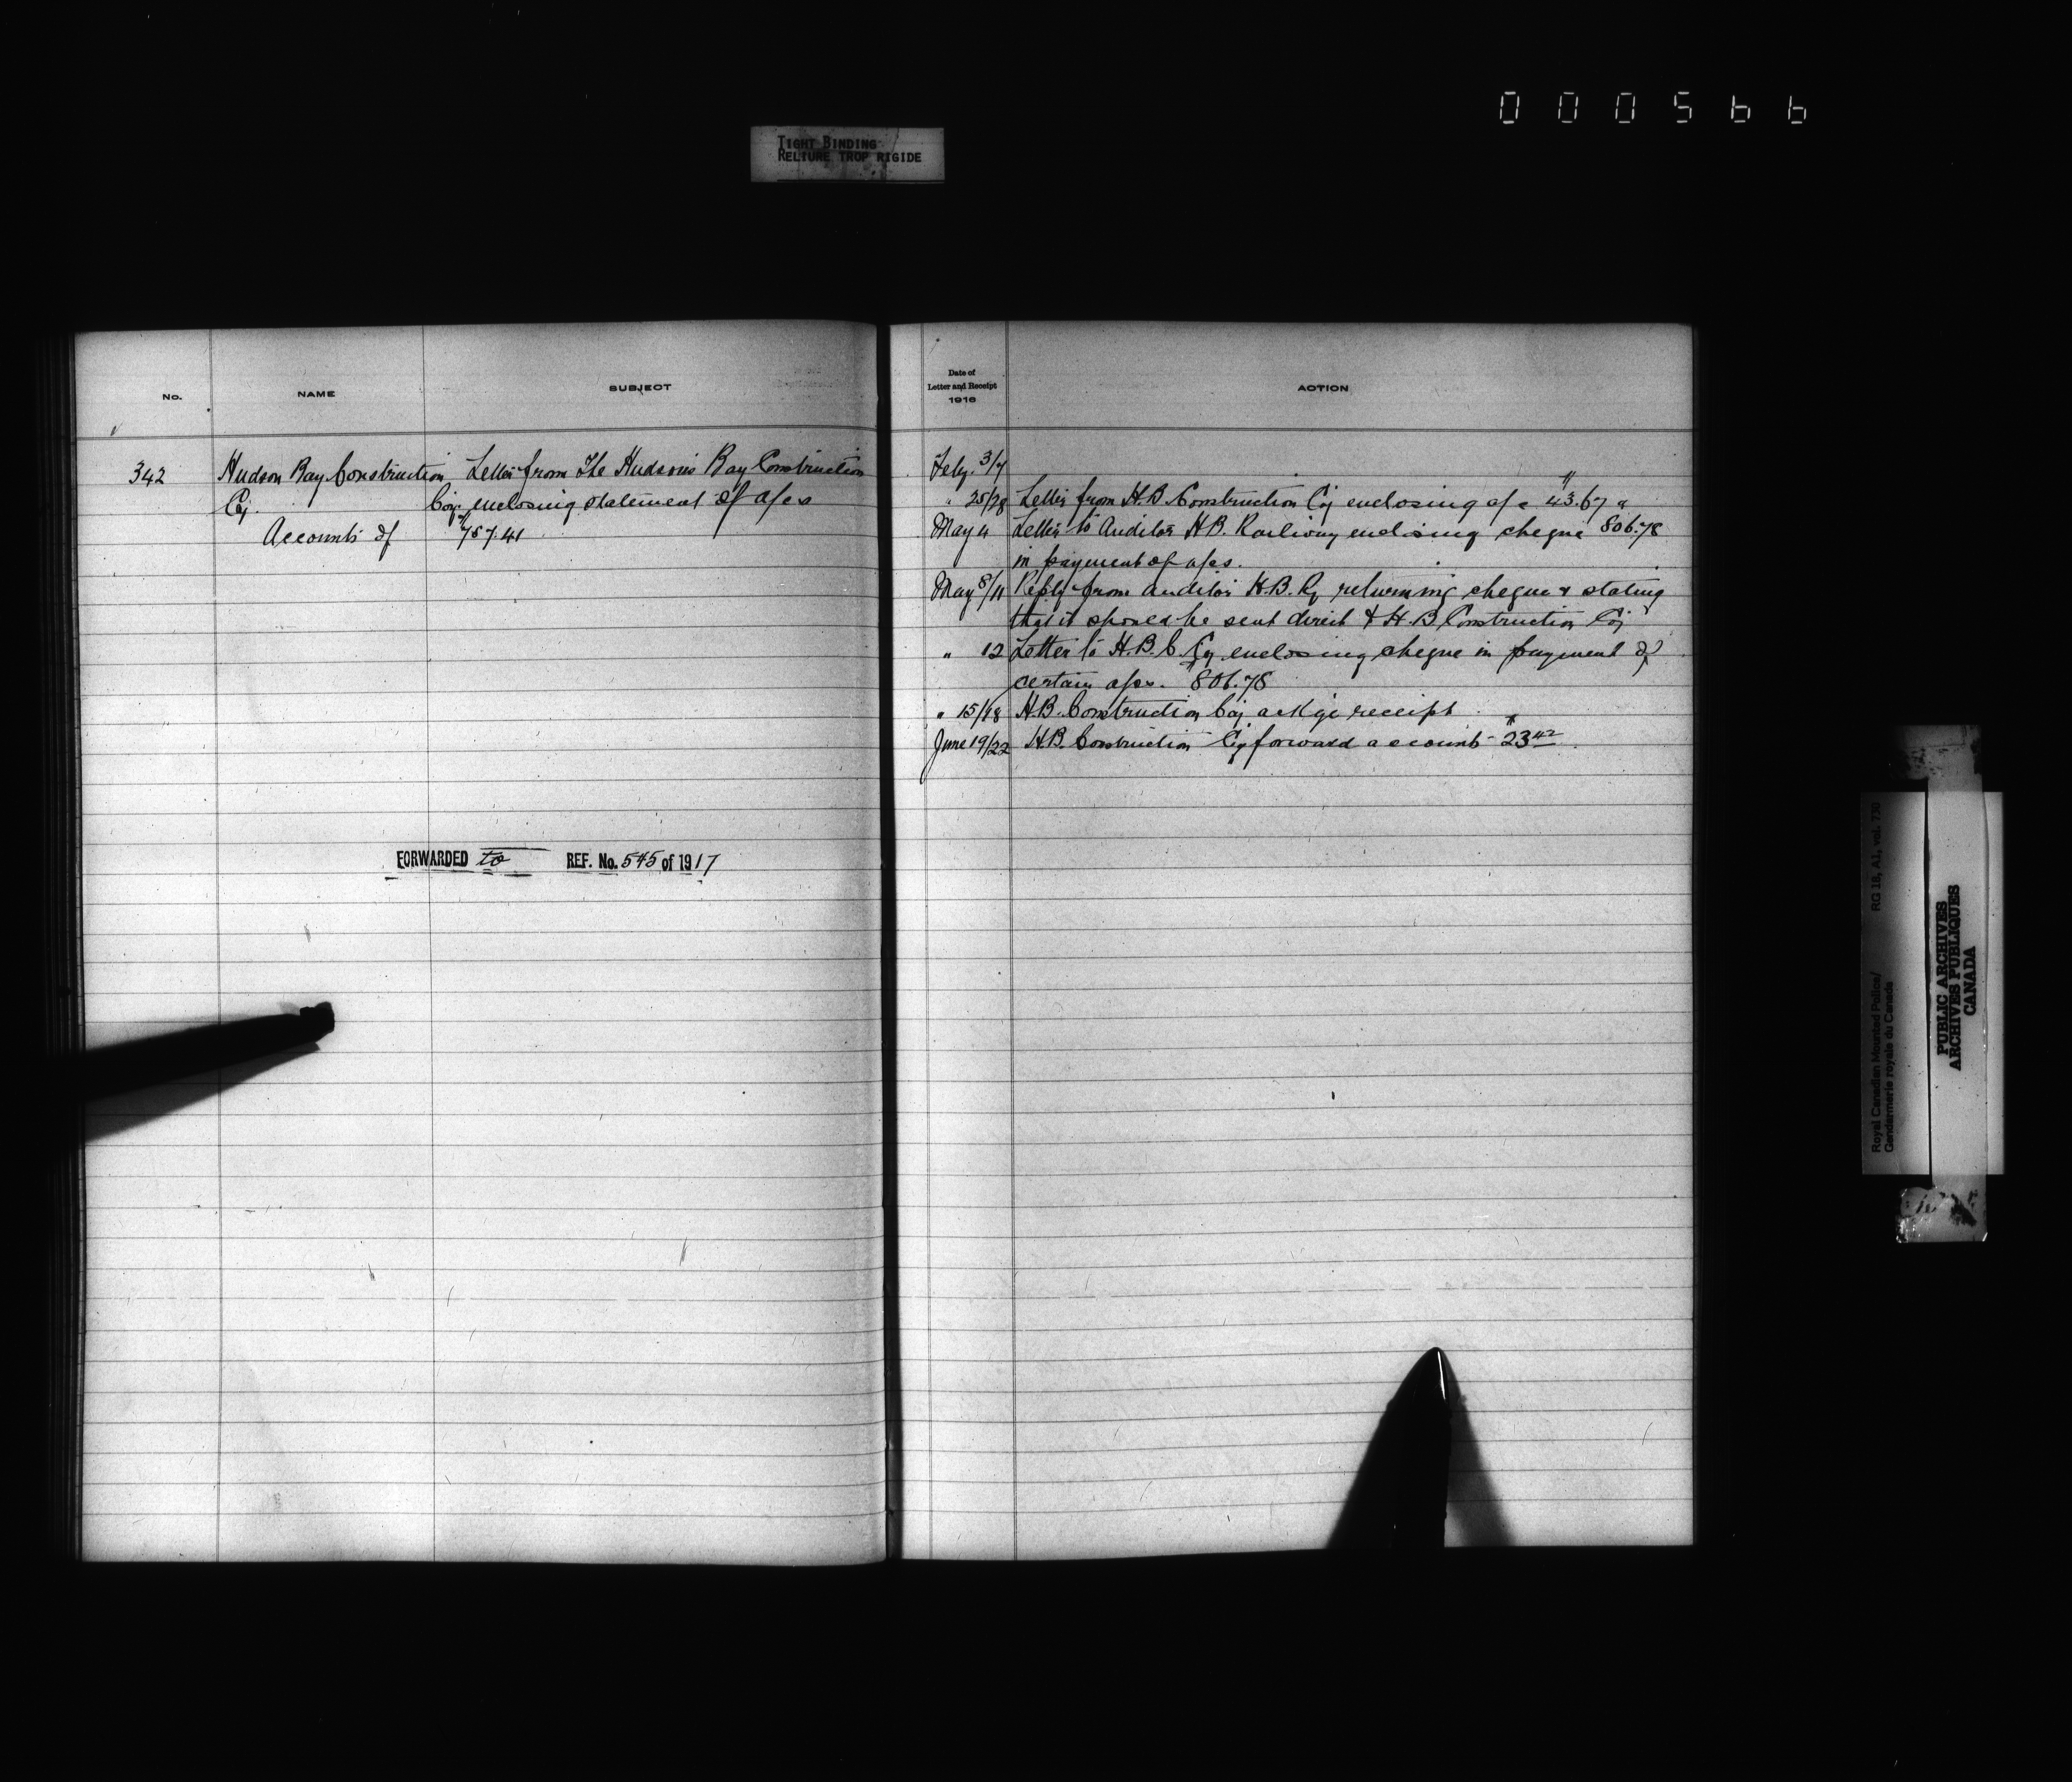 000566
TIGHT BINDING
RELIURE TROP RIGIDE
No.
NAME
SUBJECT
342
Hudson Bay Construction
Coy.
Accounts of
Letter from The Hudson's Bay Construction
Coy. enclosing statement of a/cs
757.41
FORWARDED to REF. No. 545 of 1917
Date of
Letter and Receipt
1916
ACTION
Feby. 3/7
" 25/28 Letter from H.B. Construction Coy enclosing a/c 43.67
May 4 Letter to Auditor H.B. Railway enclosing cheque 806.78
in payment of a/cs.
May 8/11 Reply from Auditor H.B. Ry returning cheque & stating
that it should be sent direct to H.B. Construction Coy
" 12 Letter to H.B.C. Coy enclosing cheque in payment of
certain a/cs. 806.78
" 15/18 H.B. Construction Coy. ackge receipt
June 19/22 H.B. Construction Coy forward account $23.42
Royal Canadian Mounted Police/
Gendarmerie royale du Canada
RG 18, A1, vol. 730
PUBLIC ARCHIVES
ARCHIVES PUBLIQUES
CANADA